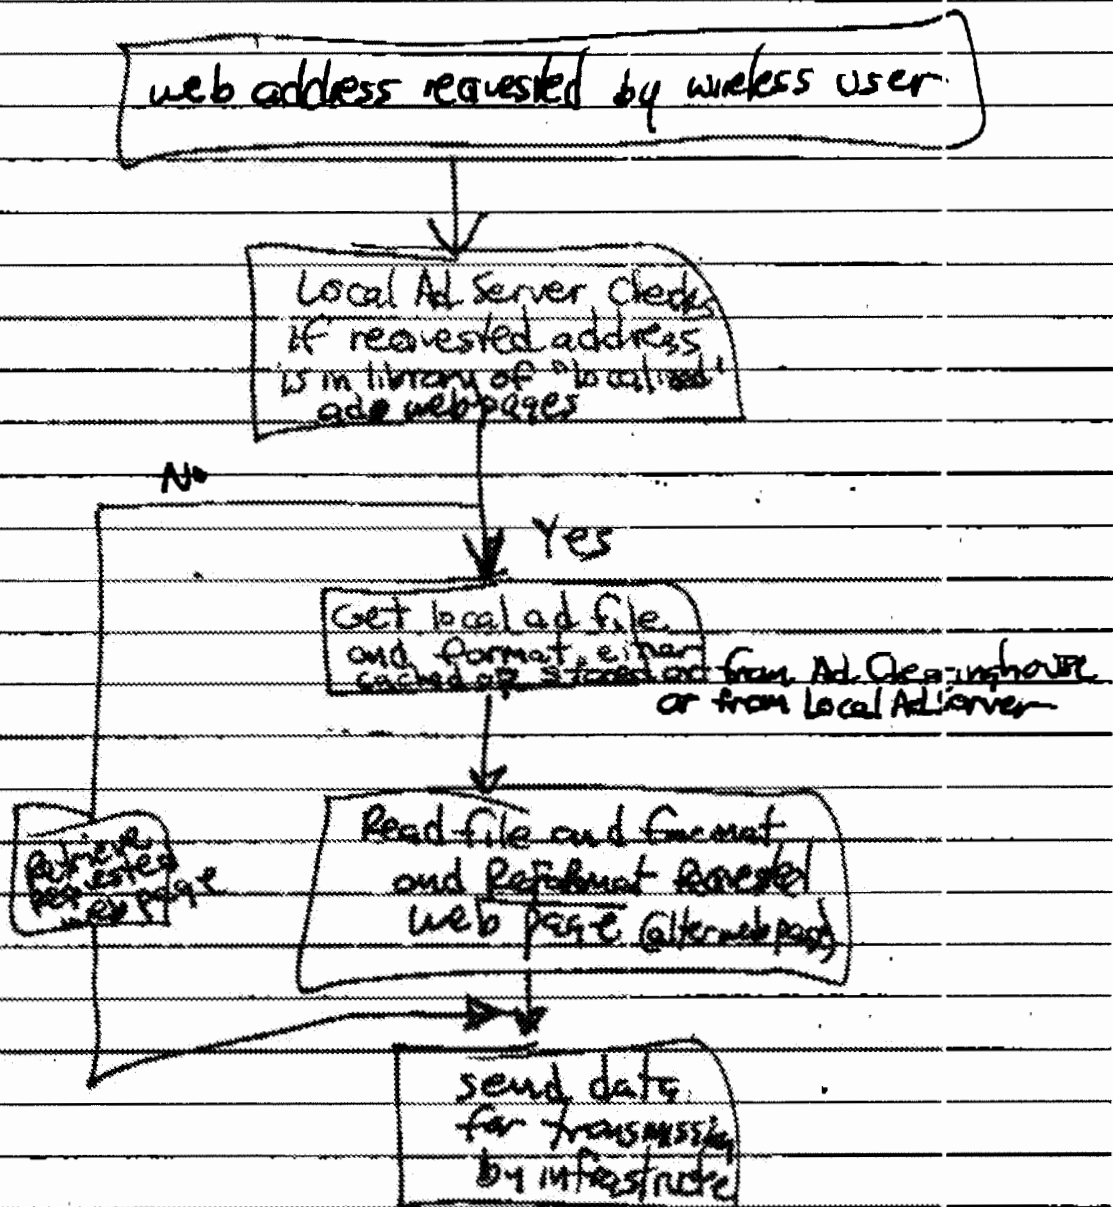 web address requested by wireless user
Local Ad Server Checks
if requested address
is in library of "localized"
ads web pages
No
Yes
Get local ad file
and format, either
cached or stored on from Ad Clearinghouse
or from Local Ad Server
Read file and format
and Reformat Requested
web page (alter web page)
Retrieve
requested
web page
send data
for transmission
by infrastructure